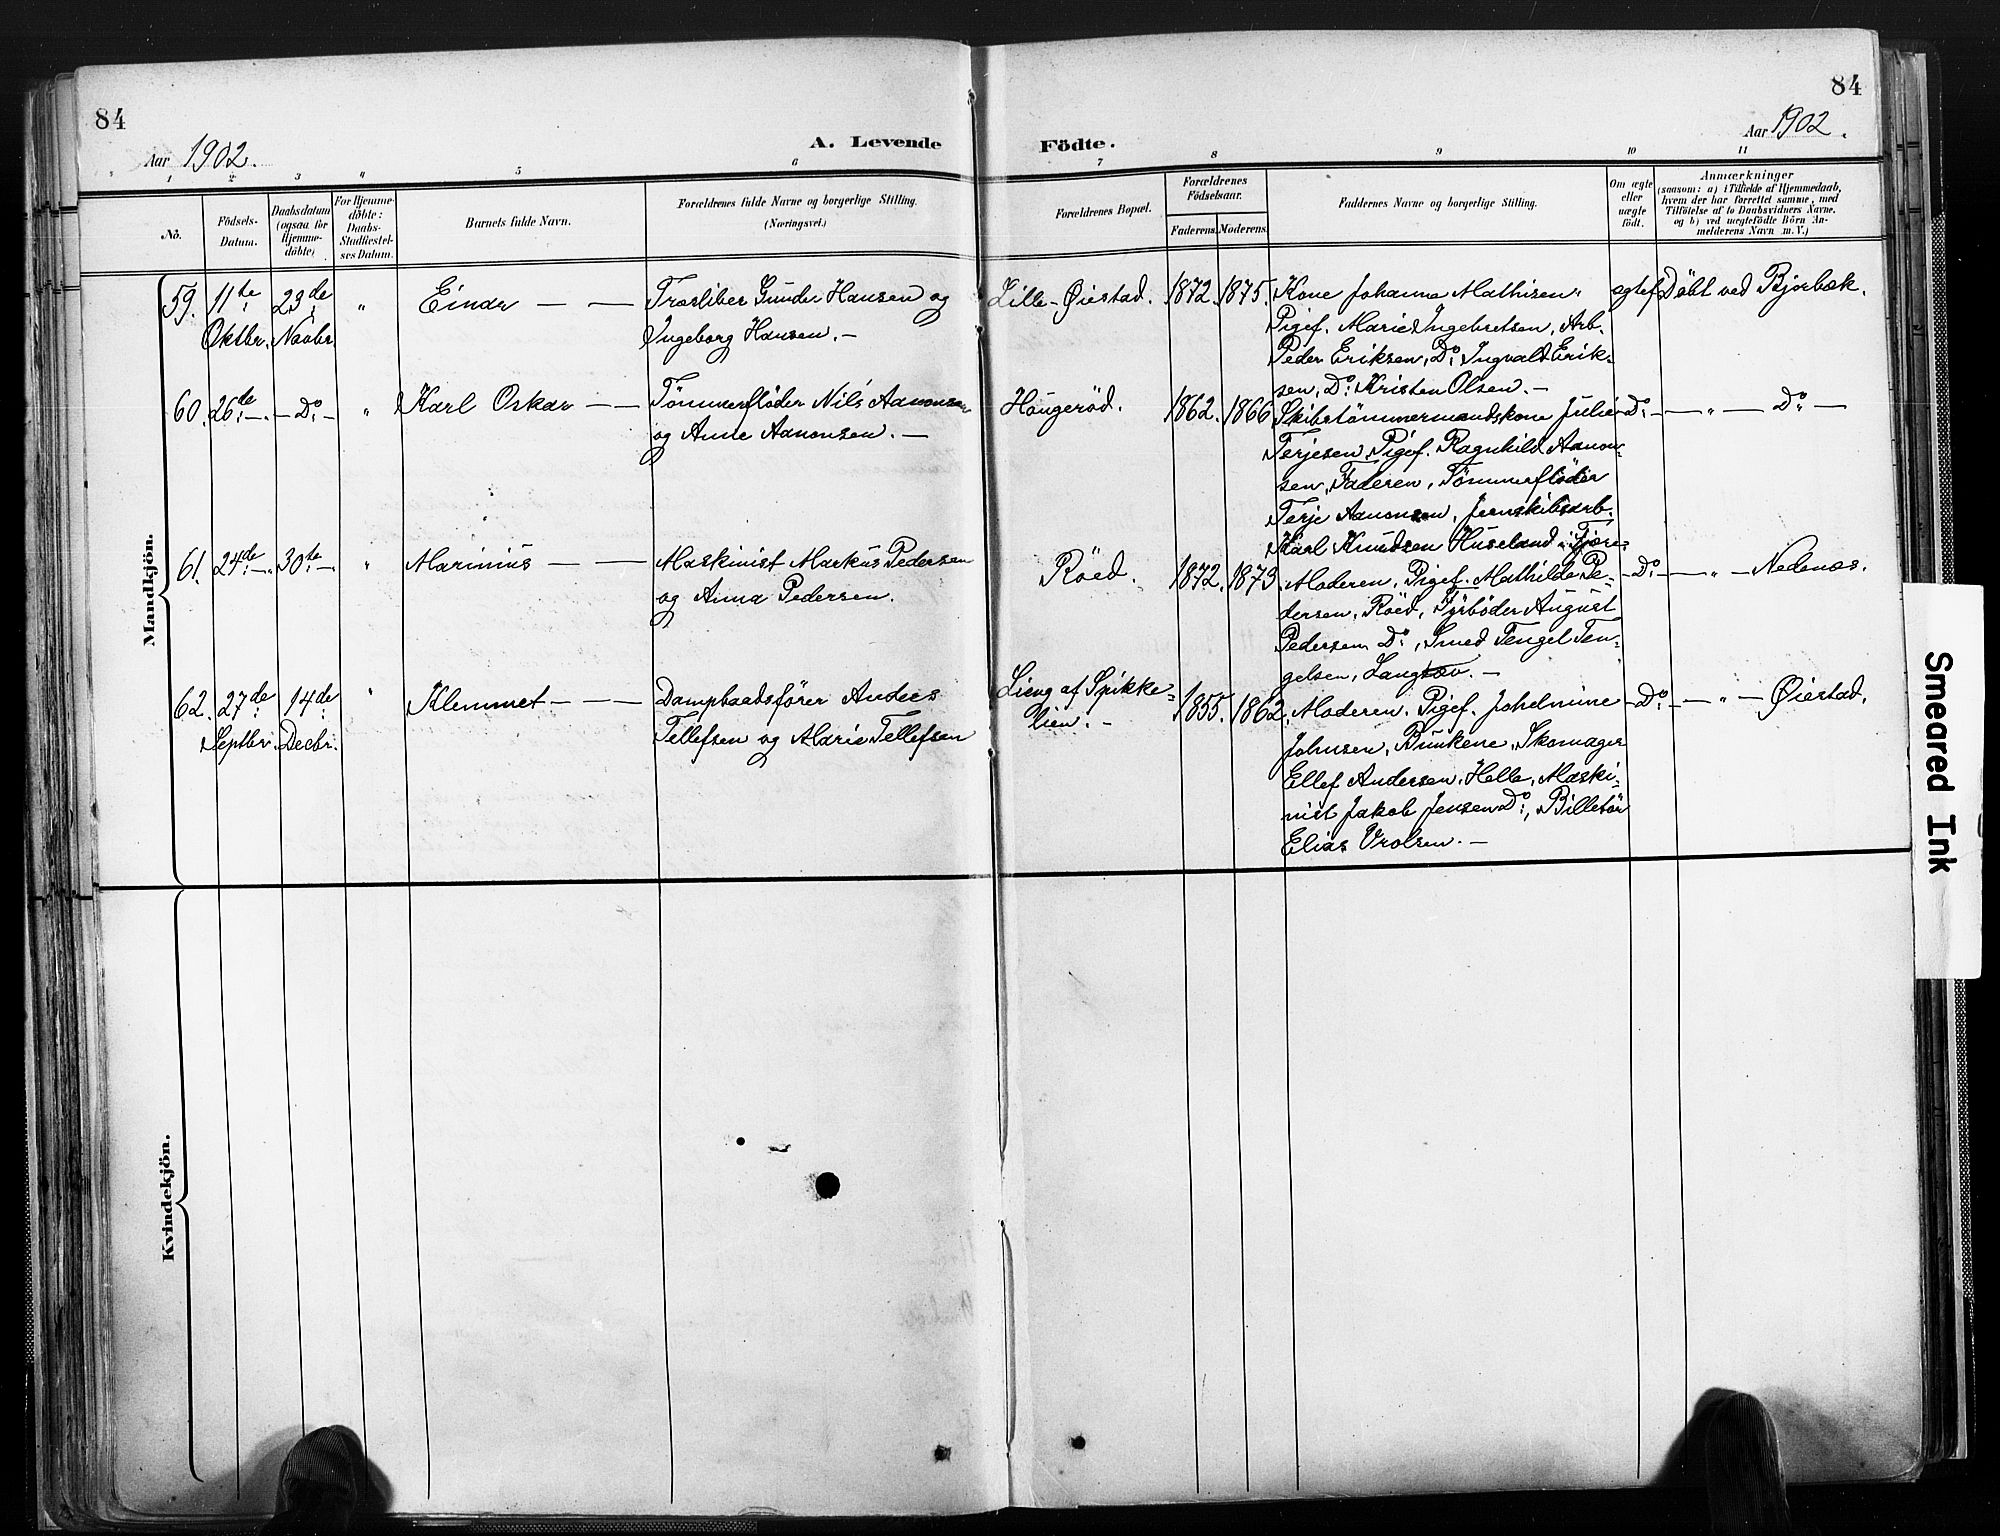 84
84
Aar 1902.
A. Levende
Födte.
Aar 1902.
1 2 3 " 5 6 7 8 9 10 11
No.
Födsels-
Datum.
Daabsdatum
(ogsaa for
Hjemme-
döbte)
For Hjemme-
döbte:
Daabs-
Stadfæstel-
ses Datum.
Barnets fulde Navn.
Forældrenes fulde Navne og borgerlige Stilling.
(Næringsvei.)
Forældrenes Bopæl.
Forældrenes
Födselsaar.
Faderens. Moderens.
Faddernes Navne og borgerlige Stilling.
Om ægte
eller
uægte
født.
Anmærkninger
(saasom: a) i Tilfælde af Hjemmedaab,
hvem der har forrettet samme, med
Tilföielse af to Daabsvidners Navne,
og b) ved uægtefödte Börn An-
melderens Navn m. V.)
Mandkjön.
59. 11te Oktbr. 23de Novbr. " Einar — —
Træsliber Gunder Hansen og
Ingeborg Hansen. —
Lille-Øiestad. 1872. 1875.
Kone Johanna Mathisen,
Pigef. Marie Ingebretsen, Arb.
Peder Eriksen, Do: Ingvald Erik-
sen, Do: Kristen Olsen. —
egtef. Døbt ved Bjorbæk.
60. 26de — — Do: — " Karl Oskar — —
Tømmerfløder Nils Aanonsen
og Anne Aanonsen. —
Haugerød. 1862. 1866
Skibstømmermandskone Julie
Terjesen, Pigef. Ragnhild Aanon-
sen, Faderen, Tømmerfløder
Terje Aanonsen, Jernskibsarb.
Karl Knudsen Huseland,
— Do: — — " — Do: —
61. 24de — 30te — " Marinius — —
Maskinist Markus Pedersen
og Anna Pedersen.
Røed. 1872. 1873.
Moderen, Pigef. Mathilde Pe-
dersen, Røed, Fyrbøder August
Pedersen Do:, Smed Tengel Ten-
gelsen, Langsæv. —
— Do: — — " — Nedenæs.
62. 27de Septbr. 14de Decbr. " Klemmet — — —
Dampbaadsfører Anders
Tellefsen og Marie Tellefsen
Lieng af Spikke-
lien. — 1855. 1862.
Moderen, Pigef. Johelmine
Johnsen, Bunkene, Skomager
Ellef Andersen, Helle, Maski-
nist Jakob Jensen Do:, Billetør
Elias Vrolsen. —
— Do: — — " — Øiestad.
Kvindekjön.
Smeared Ink